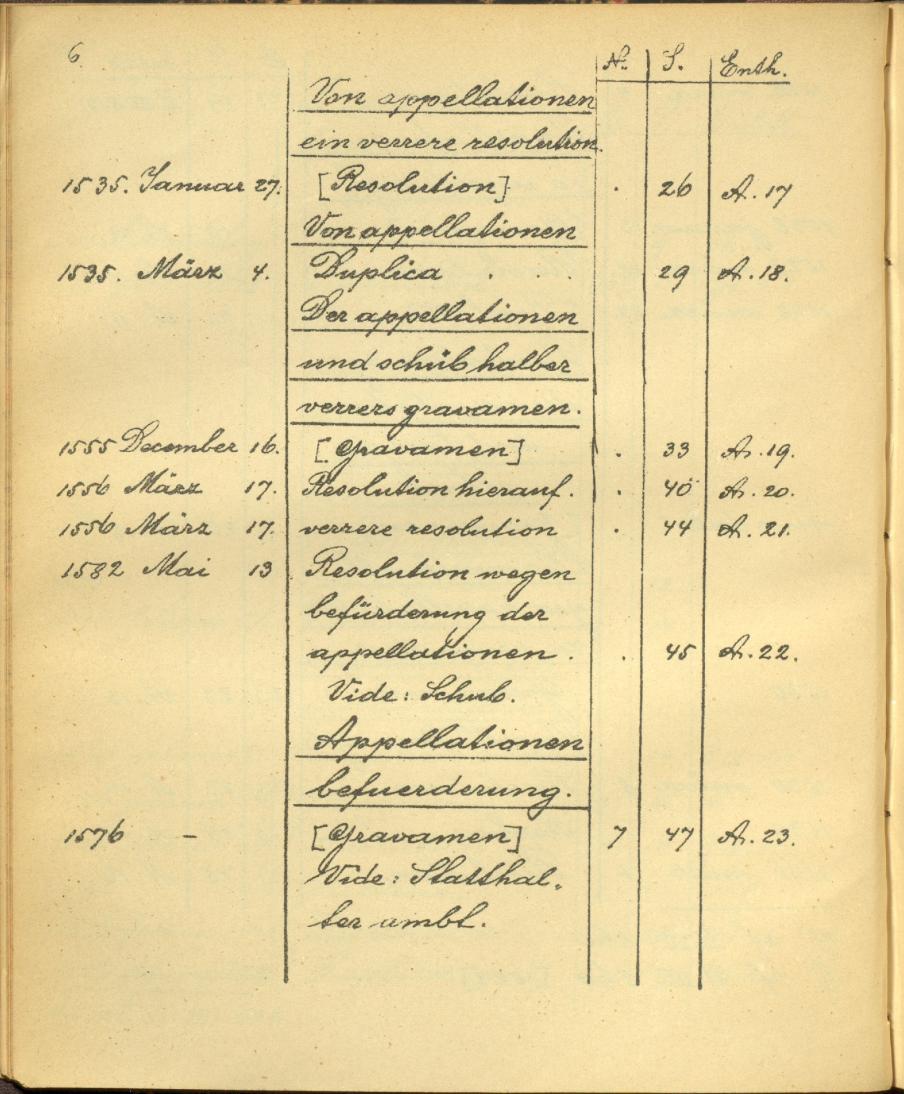 6.
N. S. Enth.
Von appellationen
ein verrere resolution.
1535. Januar 27. [Resolution] . 26 A. 17
Von appellationen
1535. März 4. Duplica . . . 29 A. 18.
Der appellationen
und schüb halber
verrers gravamen.
1555 December 16. [Gravamen] . 33 A. 19.
1556 März 17. Resolution hierauf. . 40 A. 20.
1556 März 17. verrere resolution . 44 A. 21.
1582 Mai 13 Resolution wegen
befürderung der
appellationen . . 45 A. 22.
Vide: Schub.
Appellationen
befuerderung.
1576 – [Gravamen] 7 47 A. 23.
Vide: Statthal„
ter ambt.